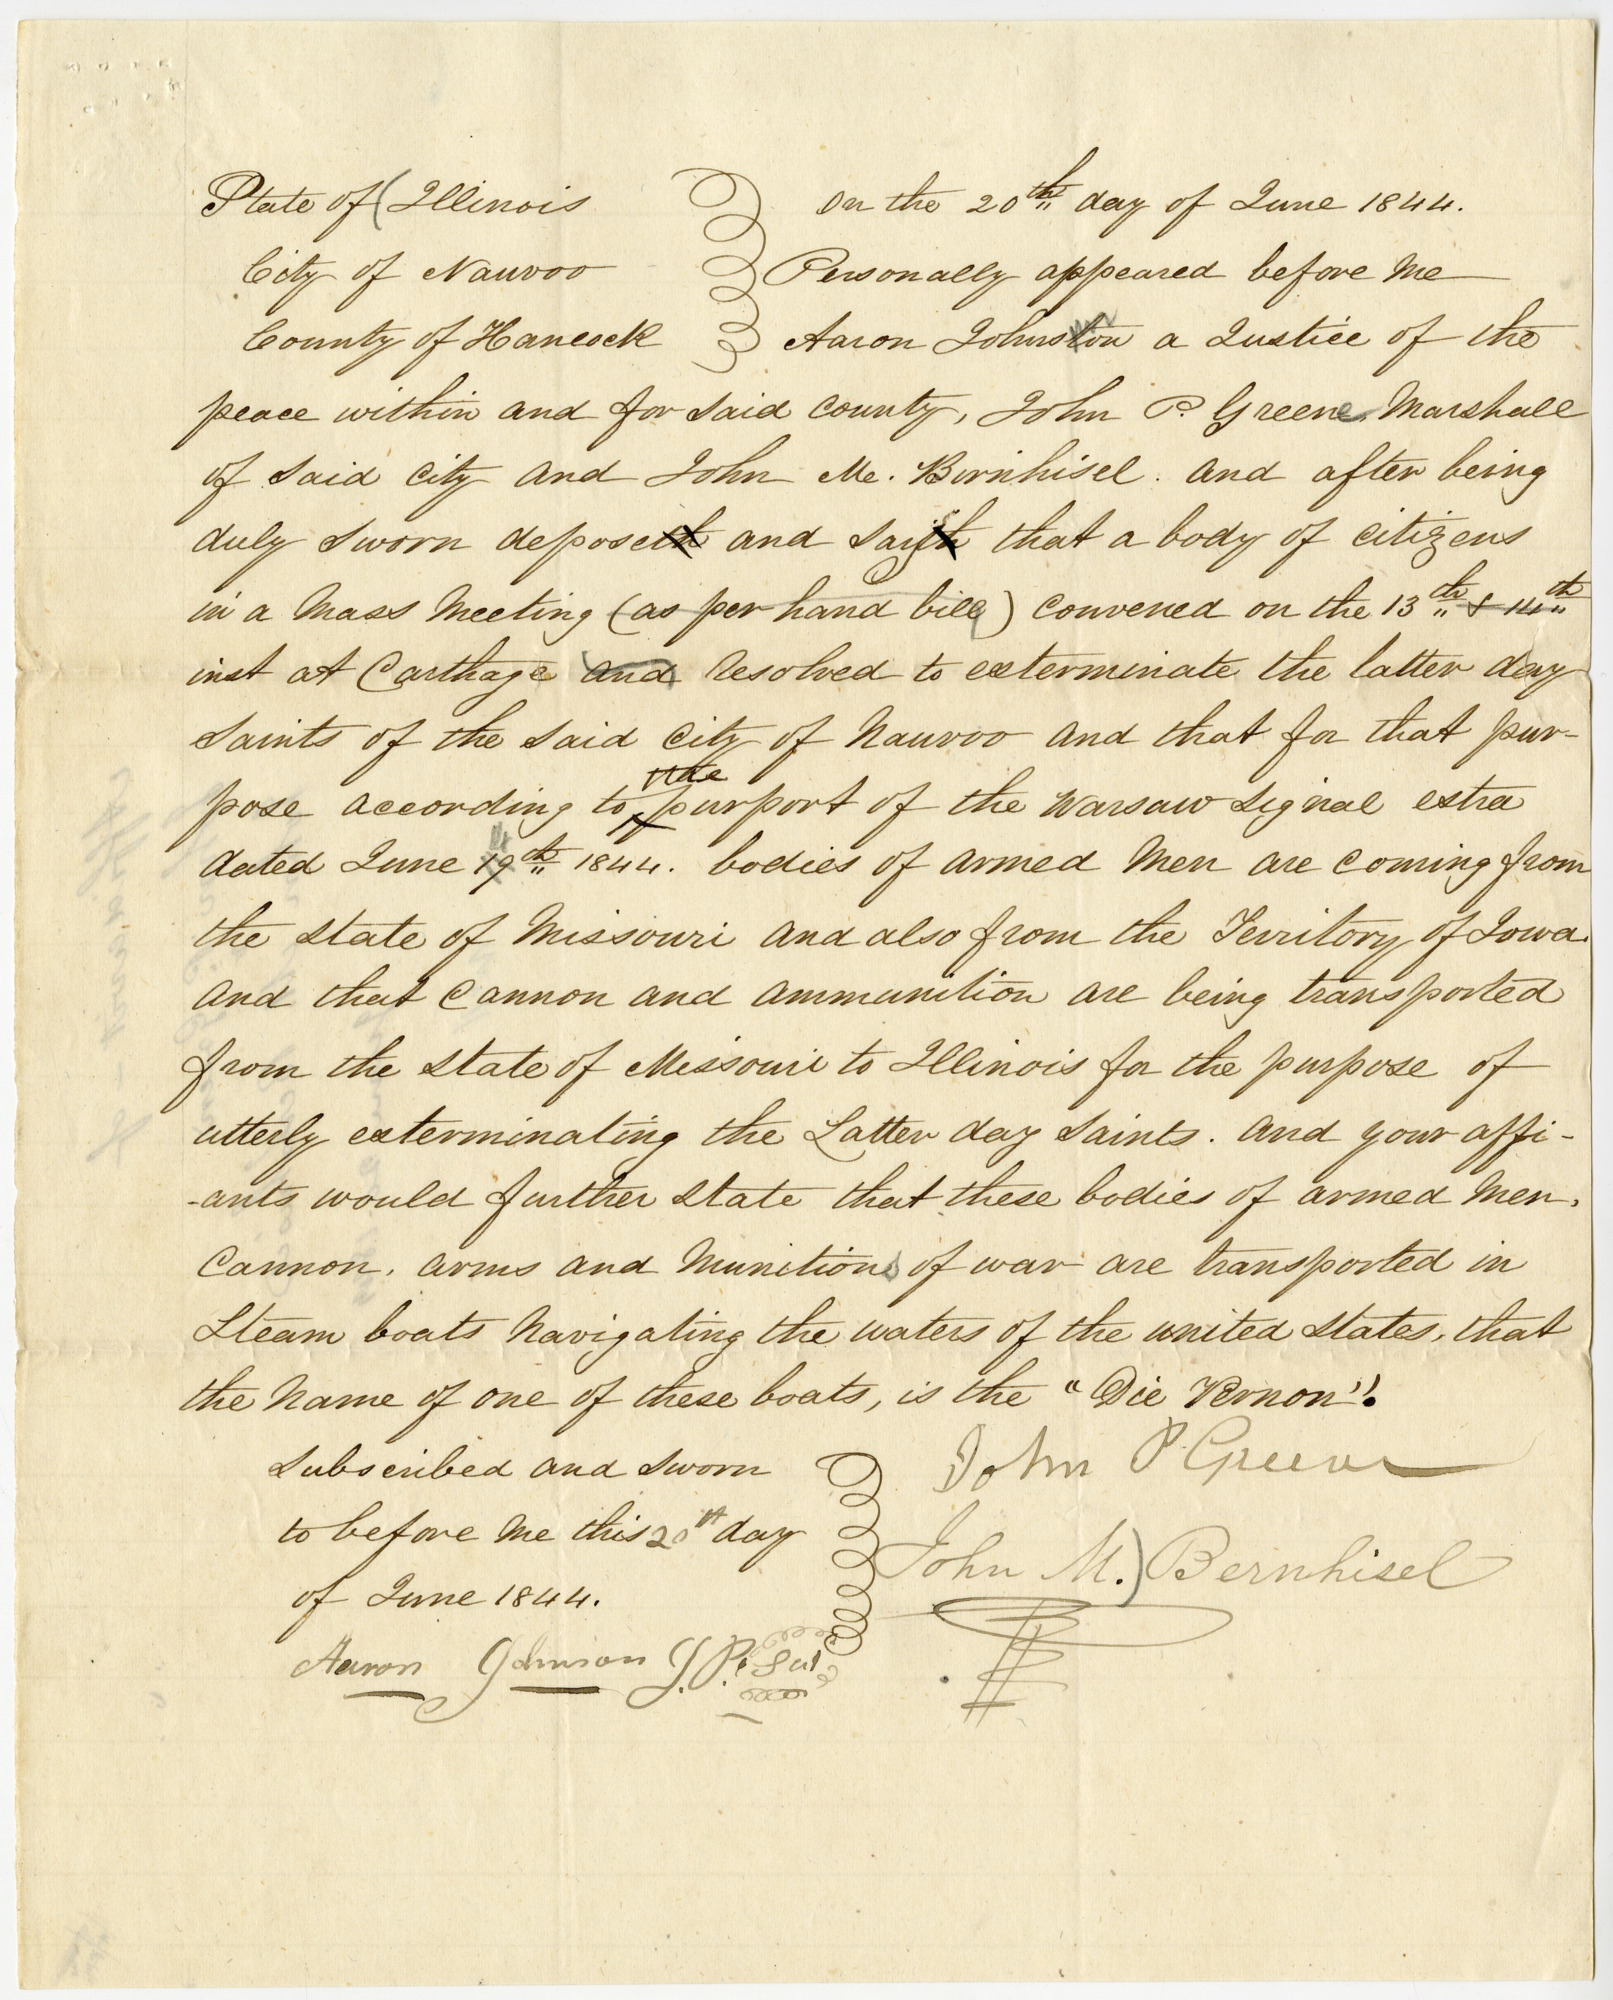 State of Illinois
City of Nauvoo
County of Hancock
On the 20th day of June 1844.
Personally appeared before me
Aaron Johnston a Justice of the
peace within and for said county, John P. Greene Marshall
of said city and John M. Birnhisel. and after being
duly sworn deposeth and saith that a body of citizens
in a mass meeting (as per hand bill) convened on the 13th & 14th
inst at Carthage and resolved to exterminate the latter day
saints of the said city of Nauvoo and that for that pur-
pose according to the purport of the Warsaw Signal extra
dated June 14th 1844. bodies of armed men are coming from
the state of Missouri and also from the Territory of Iowa.
and that cannon and ammunition are being transported
from the state of Missouri to Illinois for the purpose of
utterly exterminating the Latter day saints. and your affi-
-ants would further state that these bodies of armed men,
cannon, arms and munitions of war are transported in
Steam boats navigating the waters of the united states, that
the name of one of these boats, is the "Die Vernon".
subscribed and sworn
to before me this 20th day
of June 1844.
Aaron Johnson J. P.
John P Greene
John M. Bernhisel